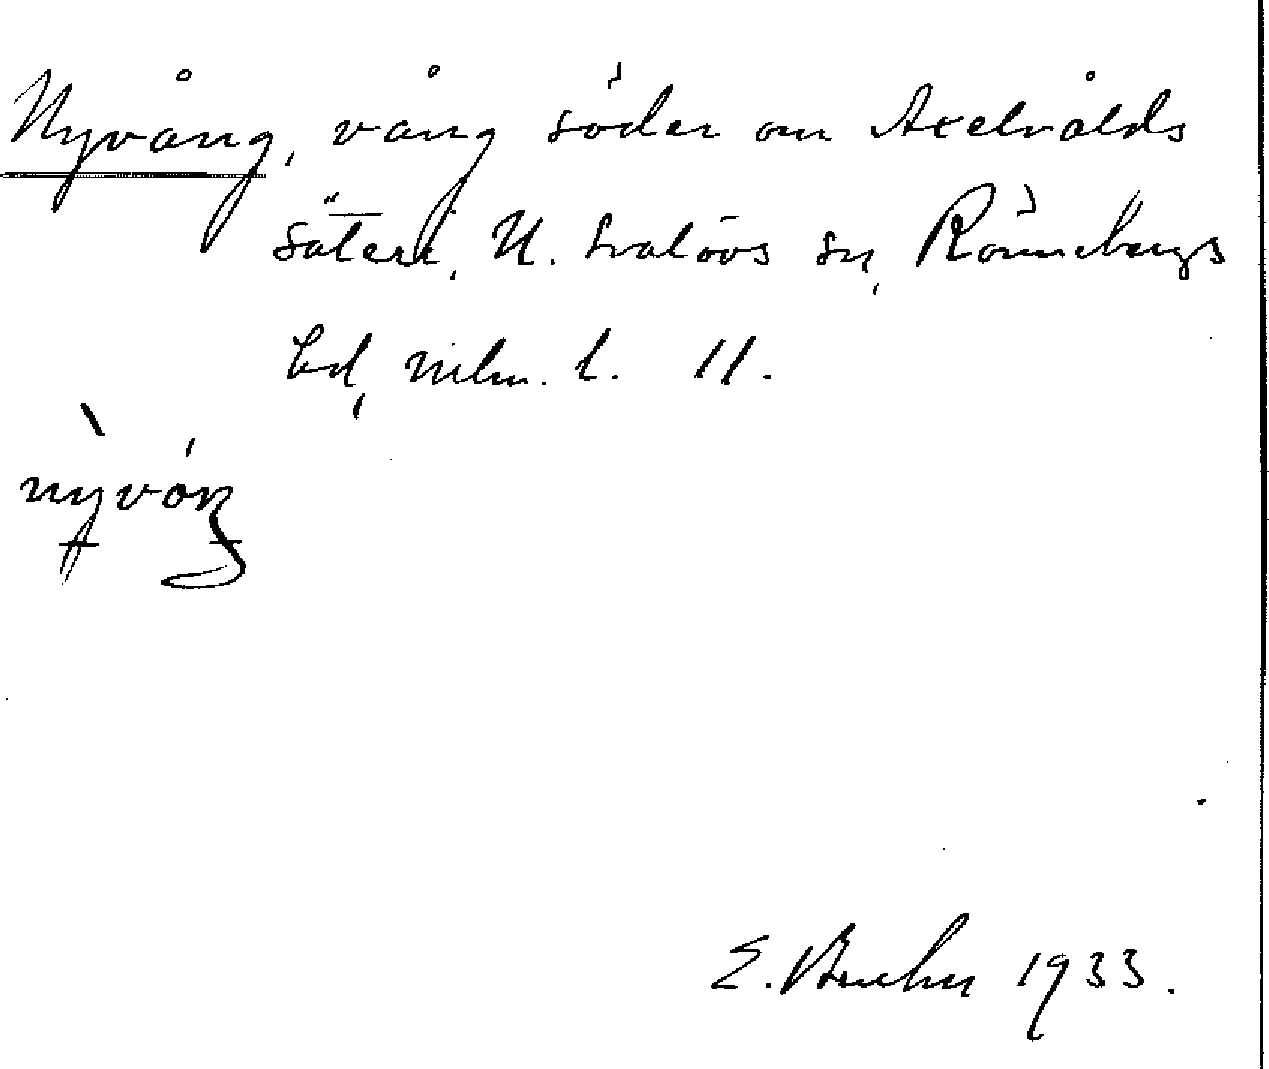 Nyvång, vång söder om Axelvålds
säteri, N. Svalövs sn, Rönnebergs
hd, Mlm. l. 11.
nyvóŋ
E. Bruhn 1933.